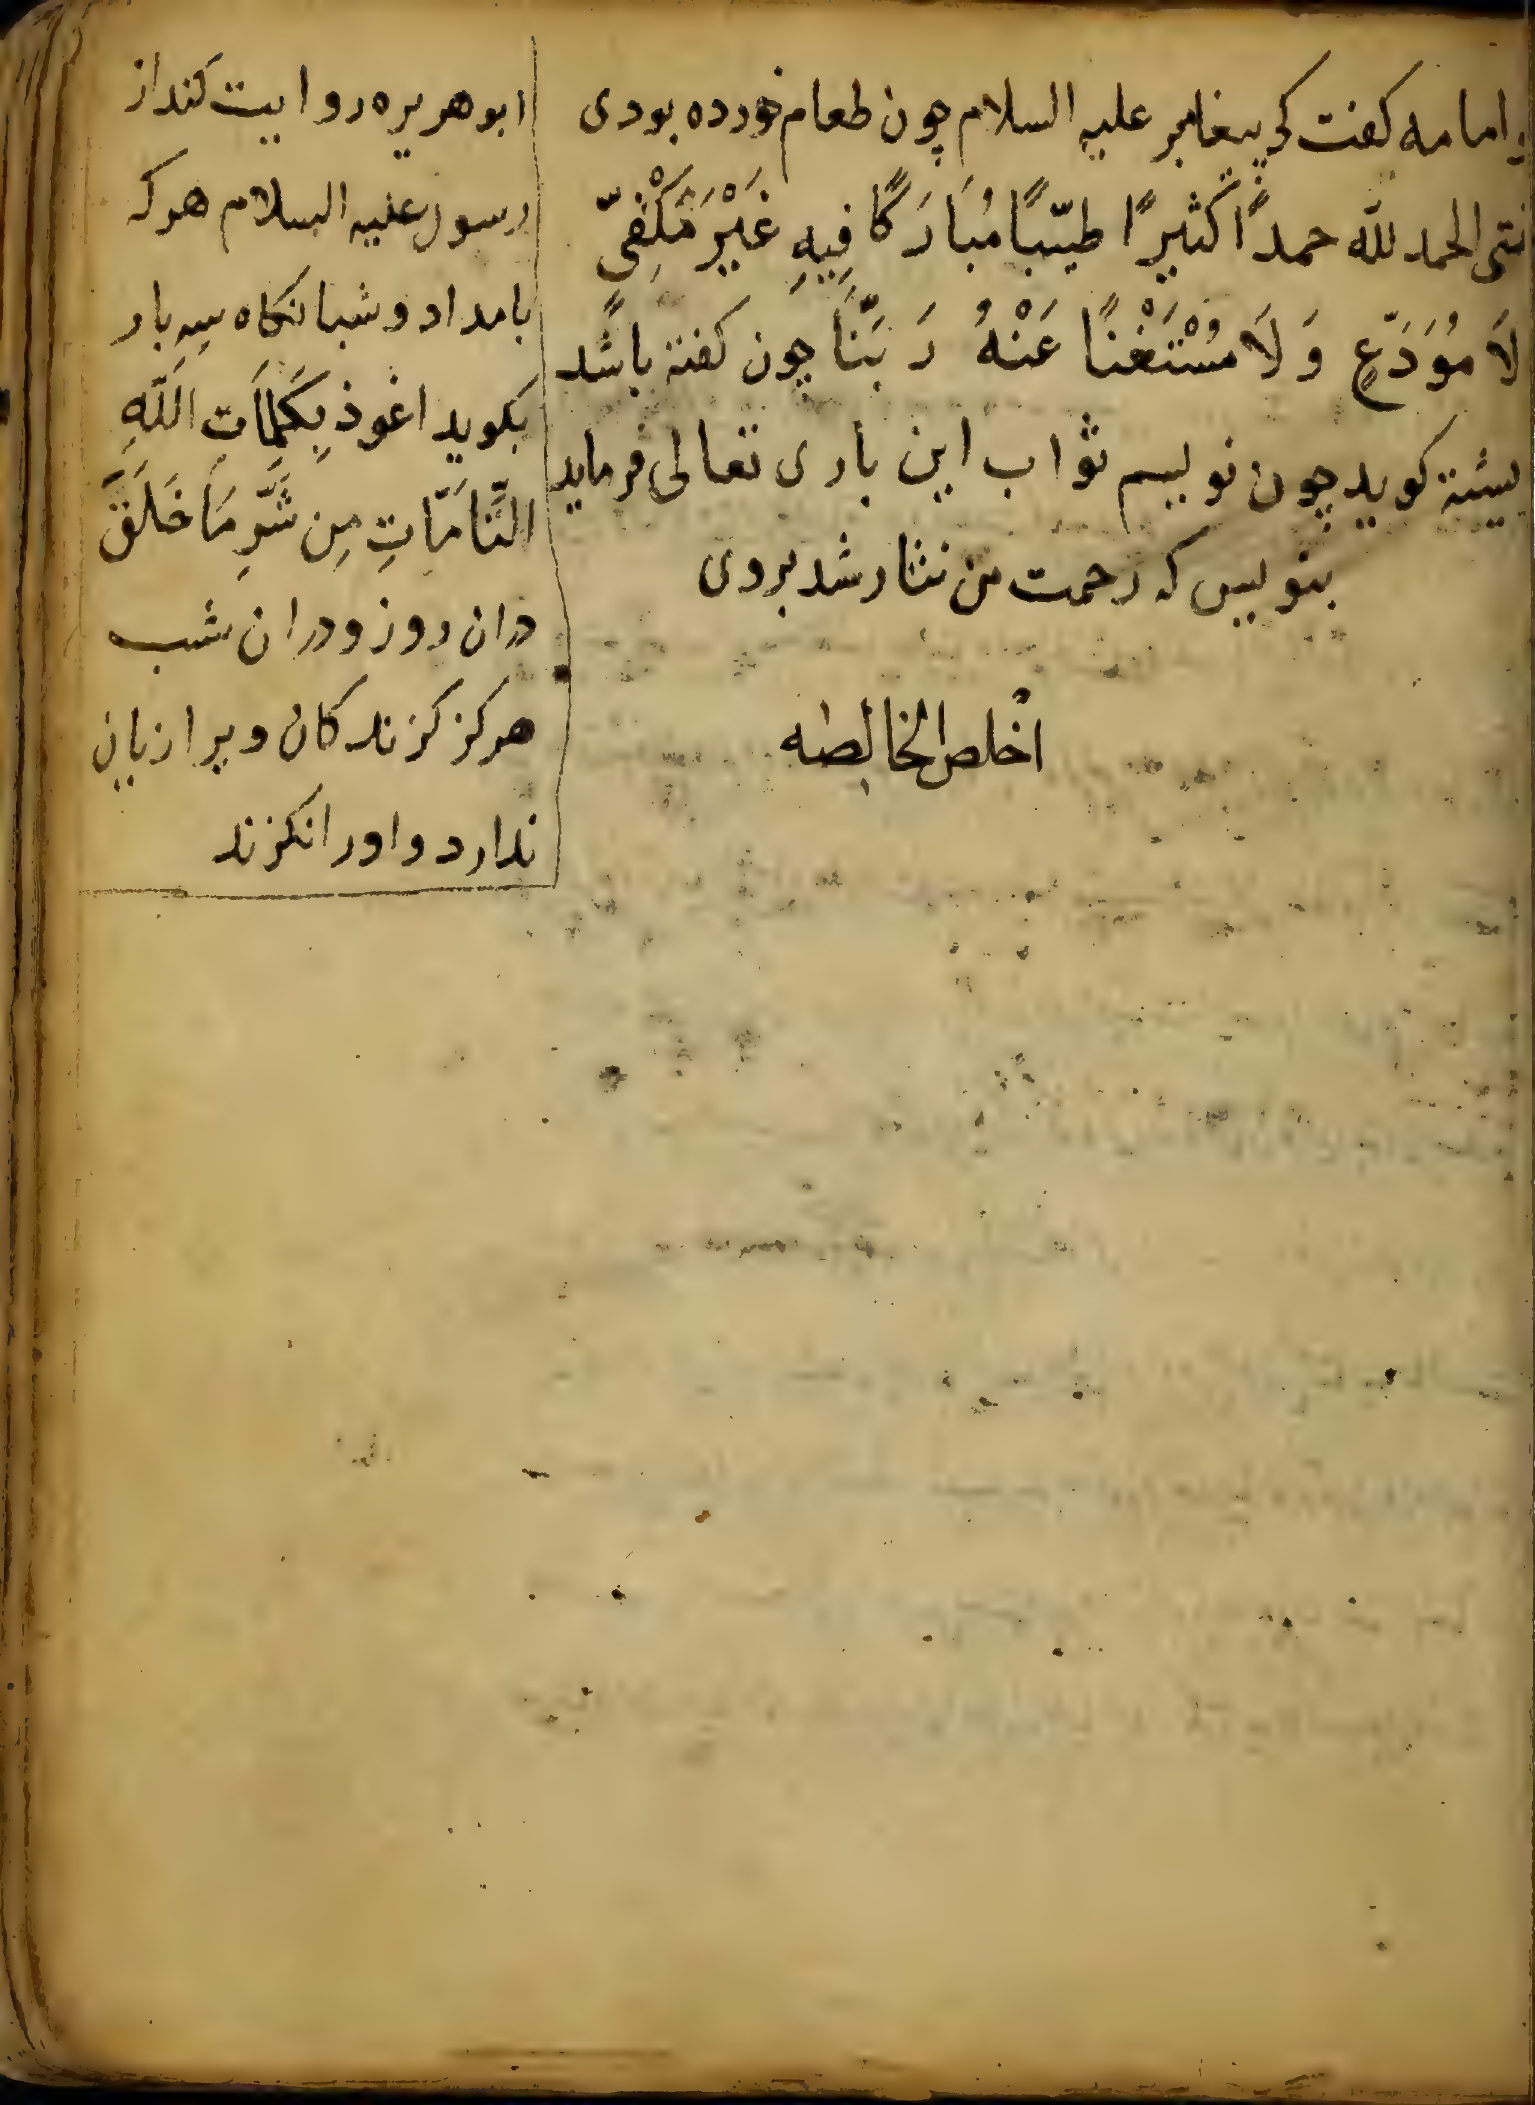 امامه كفت كى پیغامبر علیه السلام چون طعام خورده بودى
الحمد لله حمداً كثیرًا طیّبًا مُبَارَكًا فِیهِ غَیْرَ مَكْفِىّ
لَا مُوَدَّعٍ وَ لَا مُسْتَغْنًا عَنْهُ رَبَّنَا چون كفته باشد
كوید چون نویسم ثواب این بارى تعالى فرماید
بنویس كه رحمت من نثار شد بروى
اخلص الخالصه
ابو هریره روایت كند از
رسول علیه السلام هر كه
بامداد و شبانكاه سه بار
بكوید اعوذ بِكَلِمَاتِ اللَّهِ
التَّامَّاتِ مِن شَرِّ مَا خَلَقَ
دران روز و دران شب
هركز كزندكان ویرا زیان
ندارد و اورا نكزند